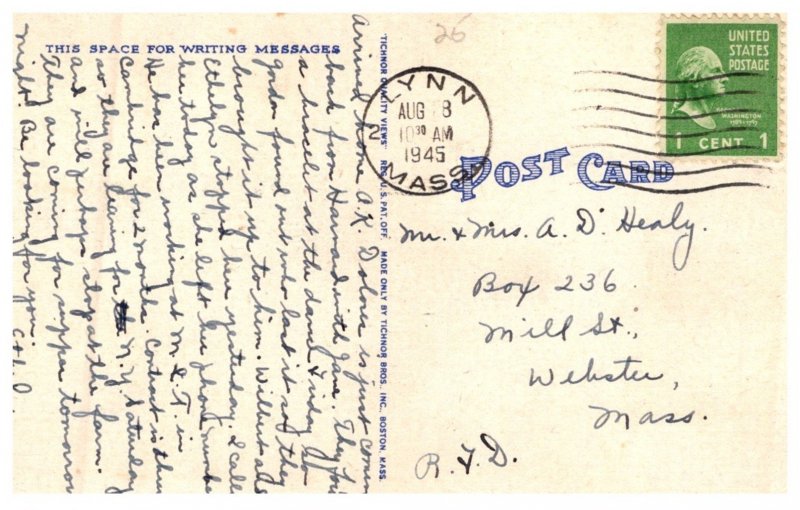 THIS SPACE FOR WRITING MESSAGES
Arrived home O.K. Dolores is just coming
back from Harvard with Jane. They
a bracelet at the dance Friday. So
Gordon found out who lost it so they
brought it up to him. Wilbert and
Ethelyn stopped here yesterday. I call
her today as she left her phone number
He has been working at M.I.T. in
Cambridge for 2 months. Contract is thru
so they are leaving for N.Y. Saturday
and will perhaps stop at the farm.
They are coming for supper tomorrow
night. Be looking for you.
"TICHNOR QUALITY VIEWS" REG. U.S. PAT. OFF. MADE ONLY BY TICHNOR BROS., INC., BOSTON, MASS.
26
LYNN
AUG 8
10 30 AM
2
1945
MASS
UNITED
STATES
POSTAGE
WASHINGTON
1 CENT 1
POST CARD
Mr. & Mrs. A. D. Healy.
Box 236
Mill St.,
Webster,
Mass.
R.F.D.